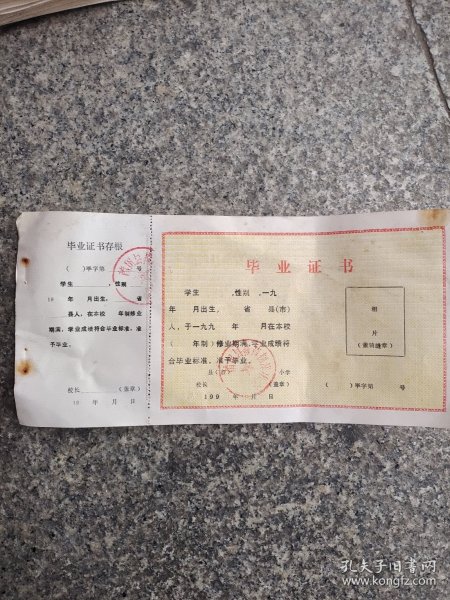 毕业证书存根
（ ）毕字第 号
学生 ，性别
19 年 月出生， 省
县人，在本校 年制修业
期满，学业成绩符合毕业标准，准
予毕业。
校长 （盖章）
19 年 月 日
毕业证书
学生 ，性别 ，一九
年 月出生， 省 县(市)
人，于一九九 年 月在本校
（ 年制）修业期满，学业成绩符
合毕业标准，准予毕业。
县( 小学
校长 （盖章）
199 年 月 日
相
片
（ ）毕字第 号
孔夫子旧书网
www.kongfz.com